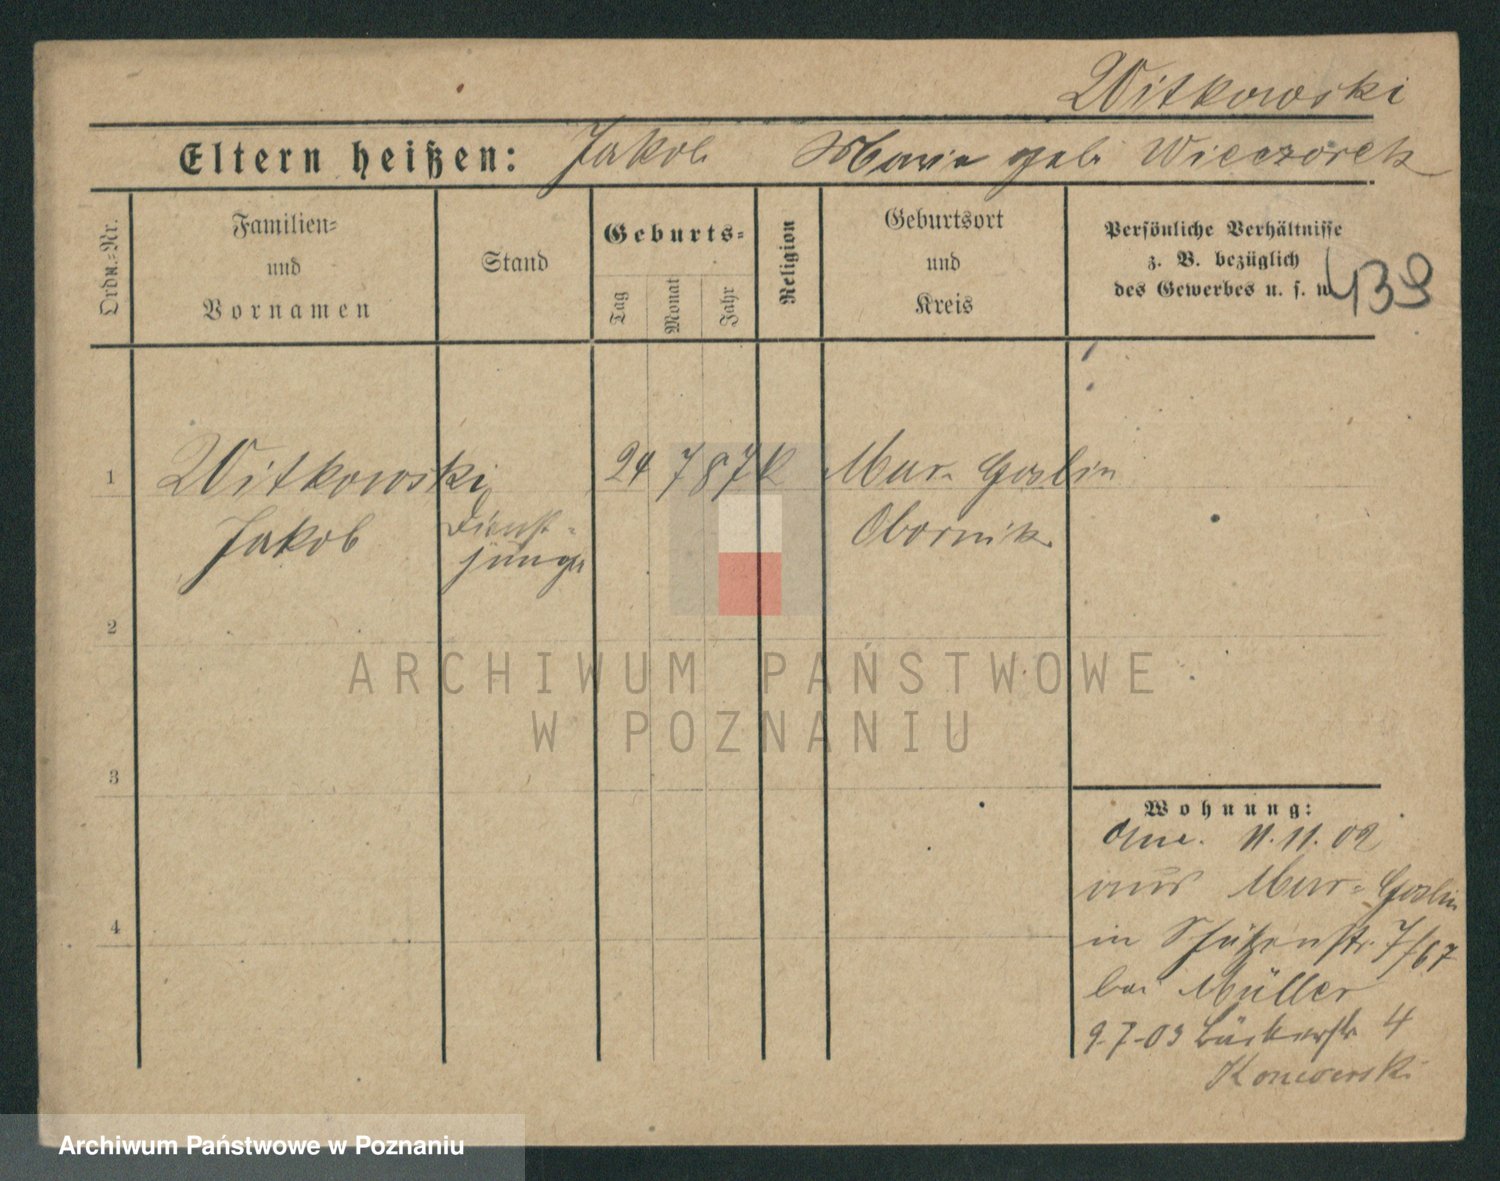 Witkowski
Eltern heißen: Jakob Marie geb. Wieczorek
Ordn.-Nr.
Familien-
und
Vornamen
Stand
Geburts-
Tag
Monat
Jahr
Religion
Geburtsort
und
Kreis
Persönliche Verhältnisse
z. B. bezüglich
des Gewerbes u. s. w.
439
1 Witkowski 24 7 87 K Mur. Goslin
Jakob Dienst-
junge Obornik
2
3
4
Wohnung:
11.11.02
aus Mur-Goslin
in Schützenstr. 7/67
bei Müller
9-7-03 Bäckerstr 4
ARCHIWUM PAŃSTWOWE
W POZNANIU
Archiwum Państwowe w Poznaniu